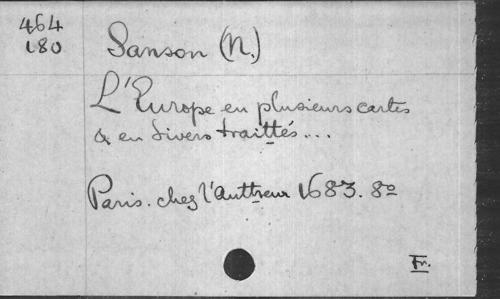 464
180
Sanson (N.)
L'Europe en plusieurs cartes
& en divers traittés...
Paris. chez l'Autheur 1683. 8º
Fr.